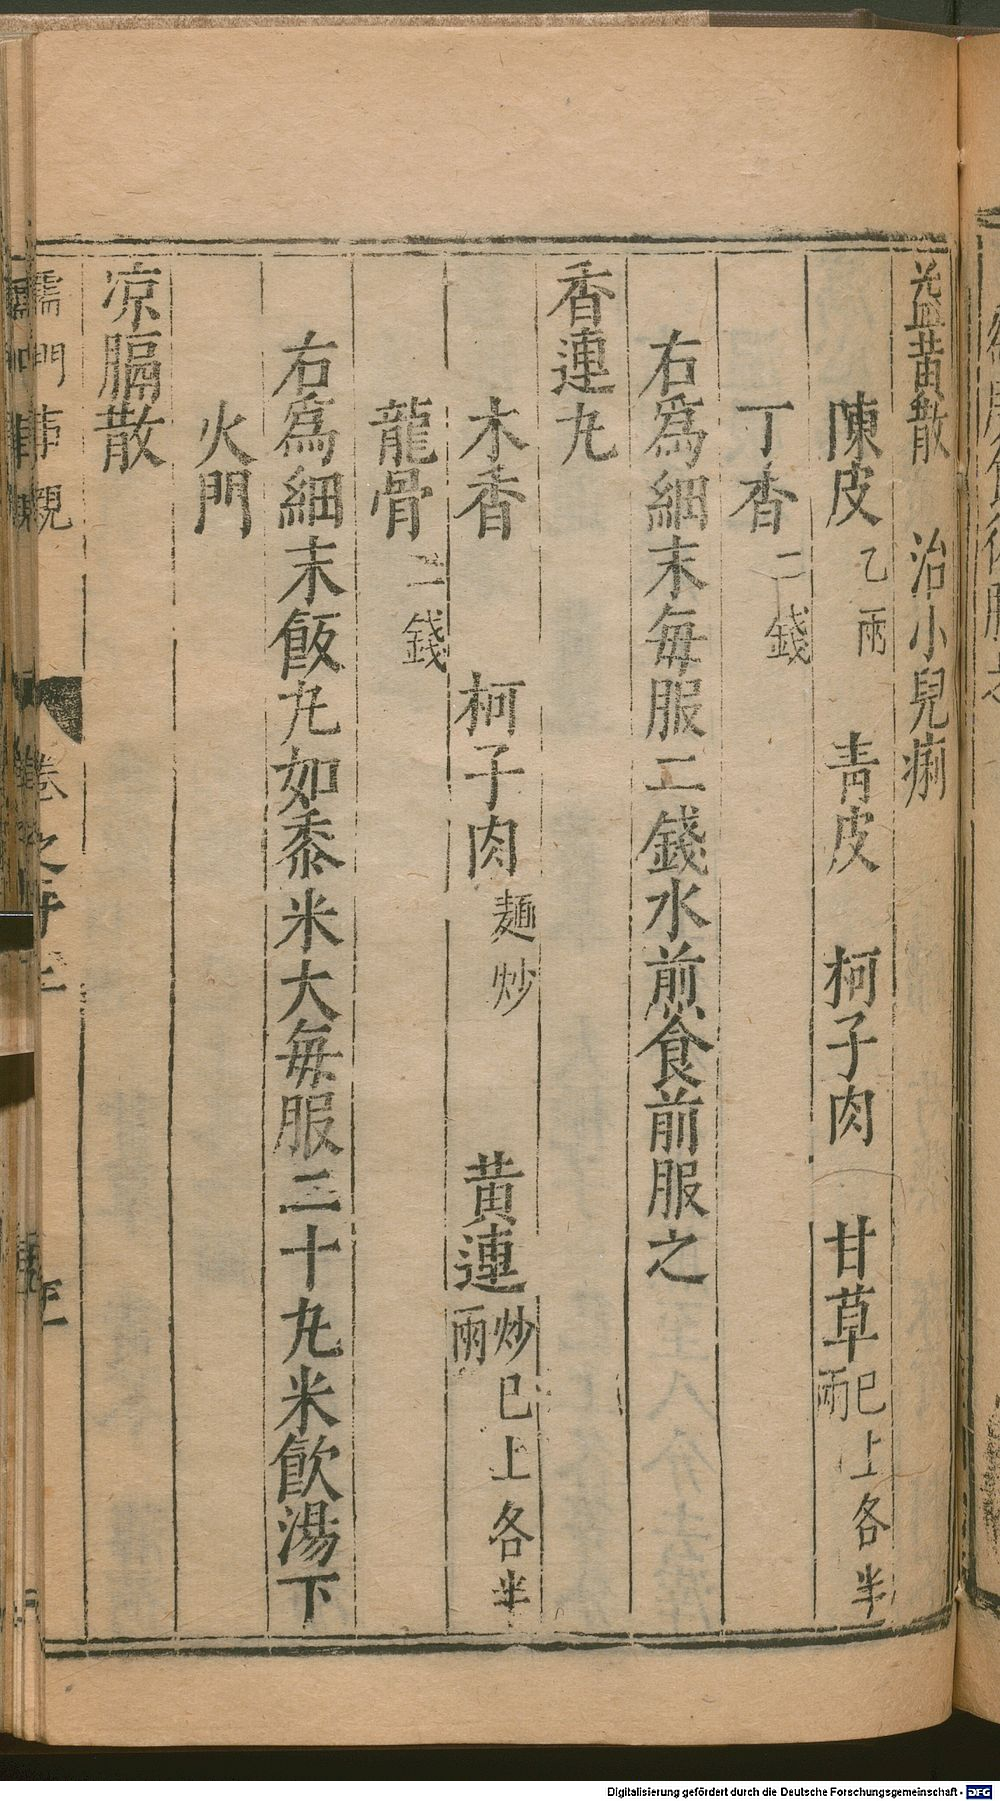 益黄散　治小兒痢
陳皮乙兩　青皮　柯子肉　甘草已上各半兩
丁香二錢
右爲細末每服二錢水煎食前服之
香連丸
木香　柯子肉麵炒　黄連炒已上各半兩
龍骨二錢
右爲細末飯丸如黍米大每服二十丸米飮湯下
火門
凉膈散
儒門事親　卷之
Digitalisierung gefördert durch die Deutsche Forschungsgemeinschaft - DFG